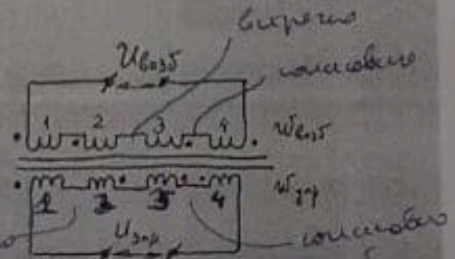 встречно
Uвозб
согласовано
1 2 3 4
Wвозб
Wупр
1 2 3 4
Uупр
согласовано